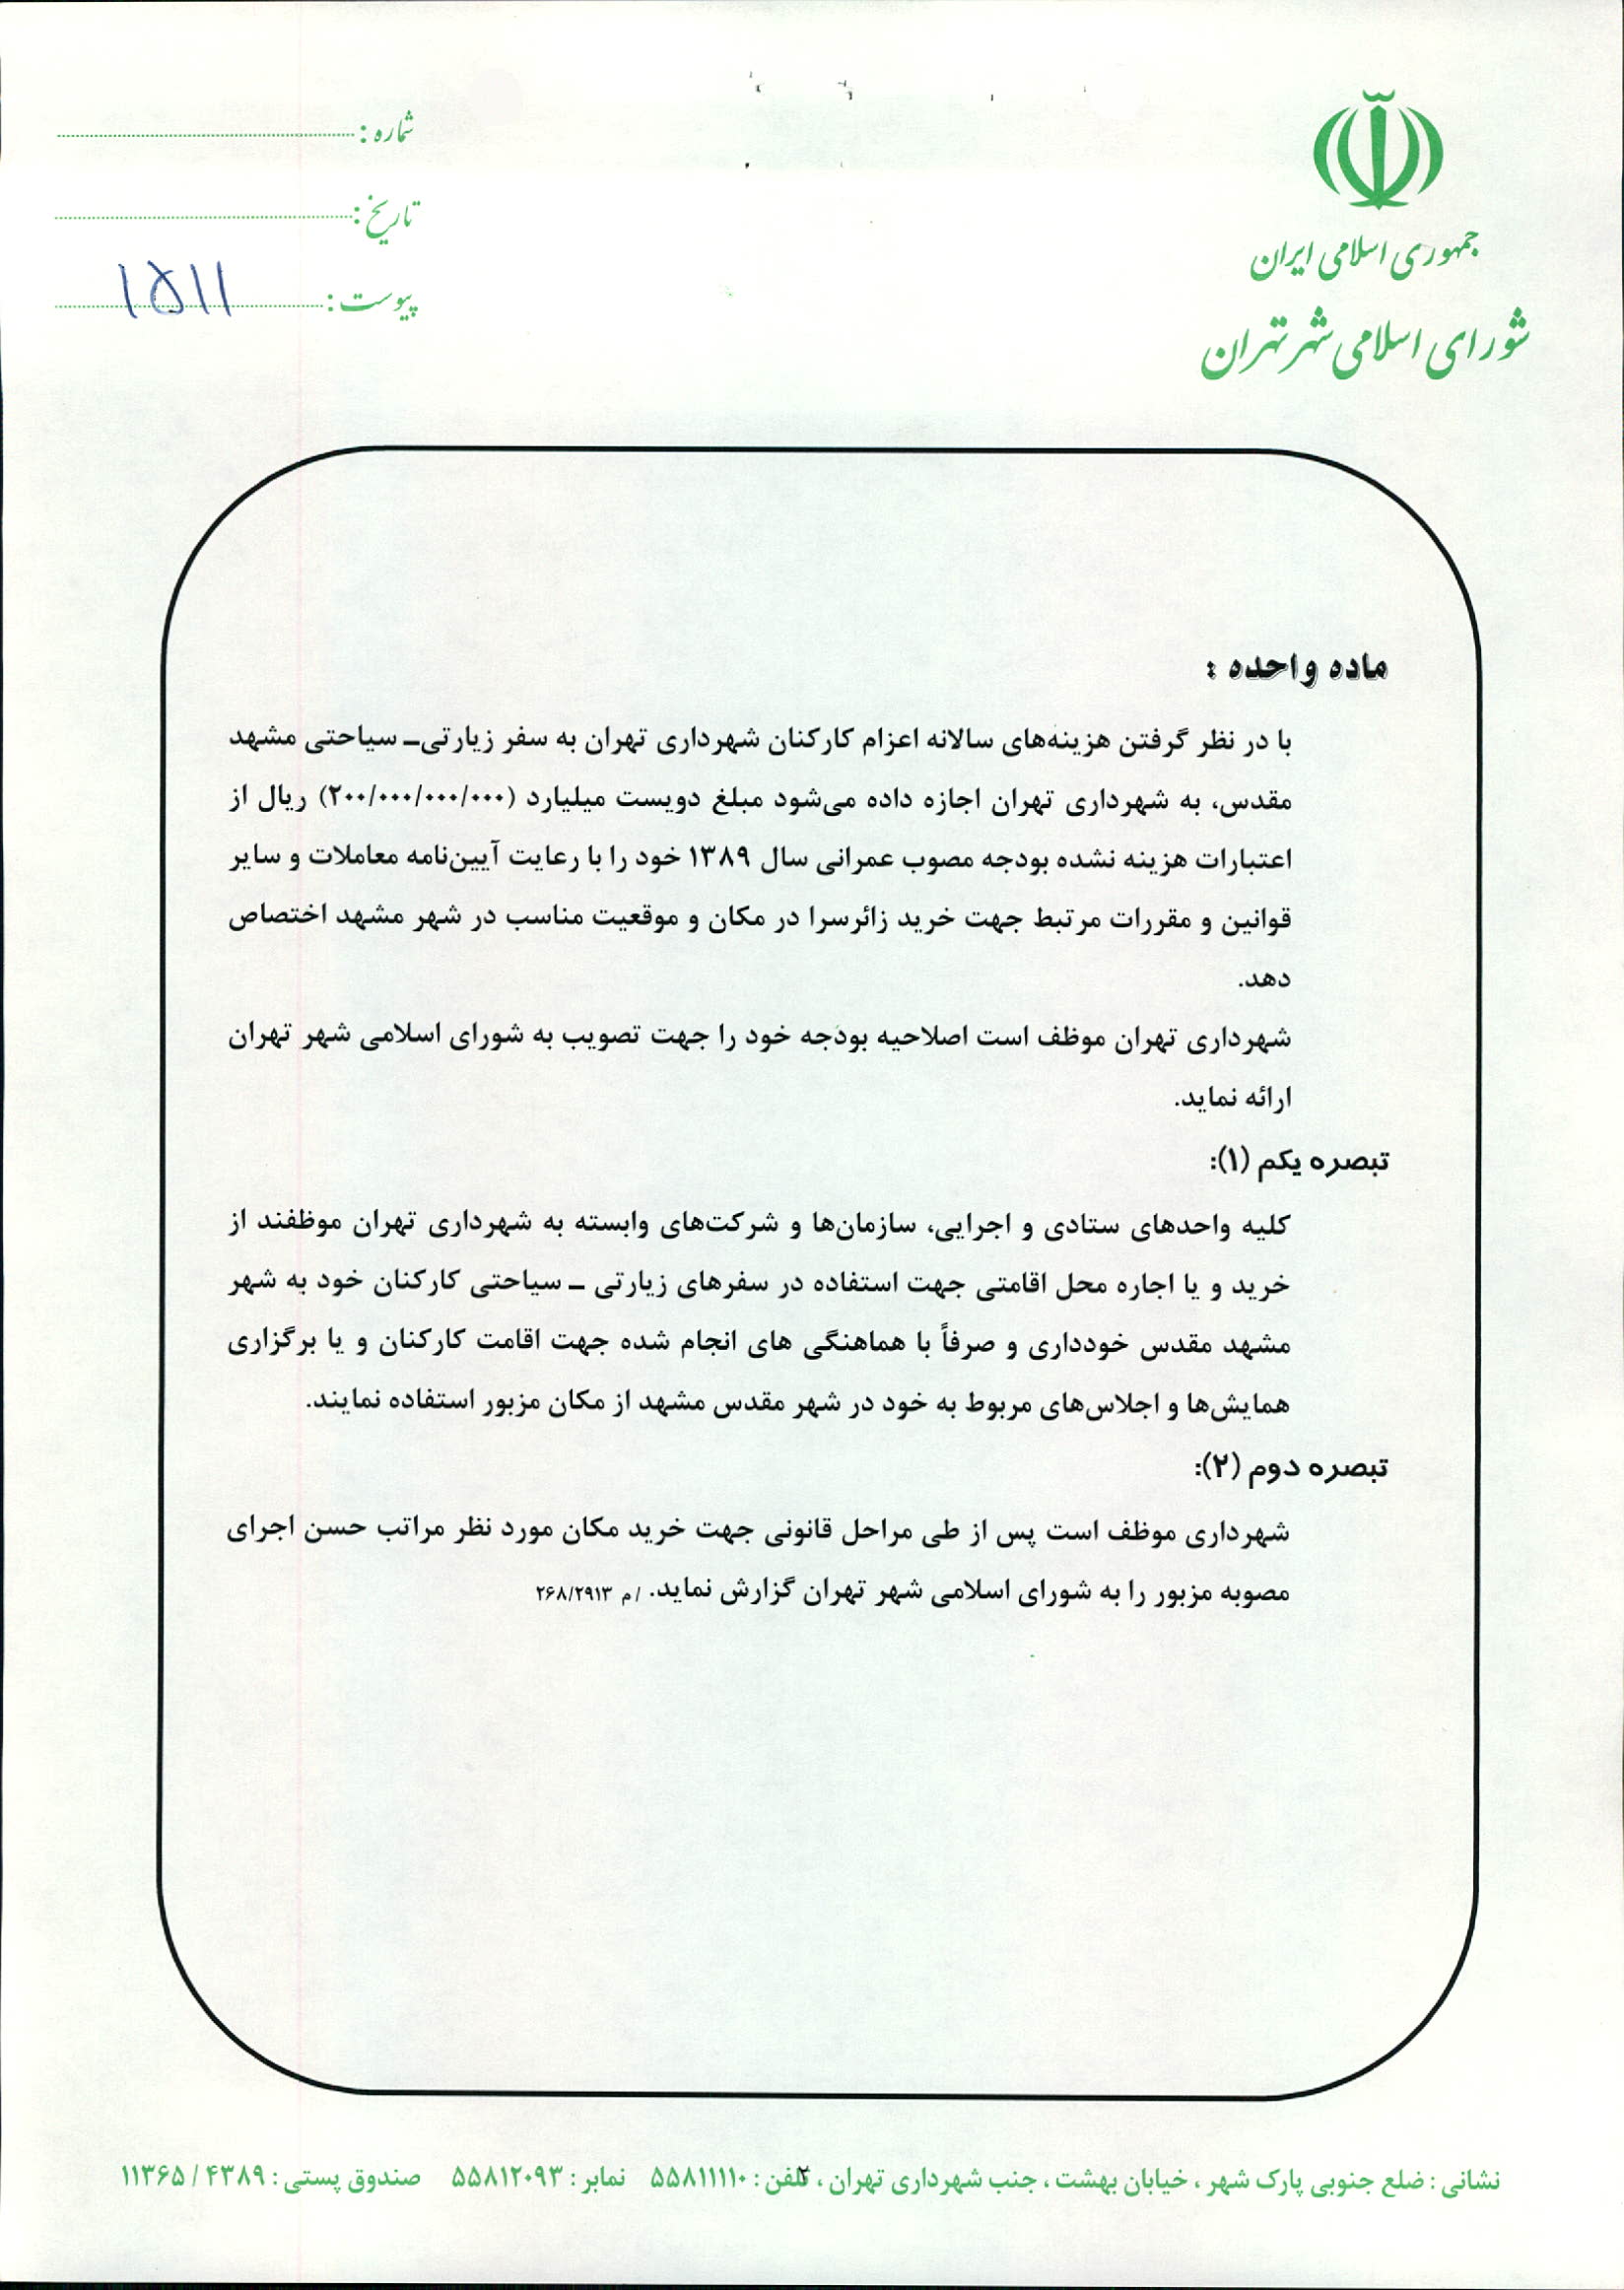 جمهوری اسلامی ایران
شورای اسلامی شهر تهران
شماره :
تاریخ :
پیوست : ۱۵۱۱
ماده واحده :
با در نظر گرفتن هزینه‌های سالانه اعزام کارکنان شهرداری تهران به سفر زیارتی– سیاحتی مشهد
مقدس، به شهرداری تهران اجازه داده می‌شود مبلغ دویست میلیارد (۲۰۰/۰۰۰/۰۰۰/۰۰۰) ریال از
اعتبارات هزینه نشده بودجه مصوب عمرانی سال ۱۳۸۹ خود را با رعایت آیین‌نامه معاملات و سایر
قوانین و مقررات مرتبط جهت خرید زائرسرا در مکان و موقعیت مناسب در شهر مشهد اختصاص
دهد.
شهرداری تهران موظف است اصلاحیه بودجه خود را جهت تصویب به شورای اسلامی شهر تهران
ارائه نماید.
تبصره یکم (۱):
کلیه واحدهای ستادی و اجرایی، سازمان‌ها و شرکت‌های وابسته به شهرداری تهران موظفند از
خرید و یا اجاره محل اقامتی جهت استفاده در سفرهای زیارتی – سیاحتی کارکنان خود به شهر
مشهد مقدس خودداری و صرفاً با هماهنگی های انجام شده جهت اقامت کارکنان و یا برگزاری
همایش‌ها و اجلاس‌های مربوط به خود در شهر مقدس مشهد از مکان مزبور استفاده نمایند.
تبصره دوم (۲):
شهرداری موظف است پس از طی مراحل قانونی جهت خرید مکان مورد نظر مراتب حسن اجرای
مصوبه مزبور را به شورای اسلامی شهر تهران گزارش نماید. /م ۲۶۸/۲۹۱۳
۲
نشانی : ضلع جنوبی پارک شهر ، خیابان بهشت ، جنب شهرداری تهران ، تلفن : ۵۵۸۱۱۱۱۰ نمابر : ۵۵۸۱۲۰۹۳ صندوق پستی : ۴۳۸۹ / ۱۱۳۶۵